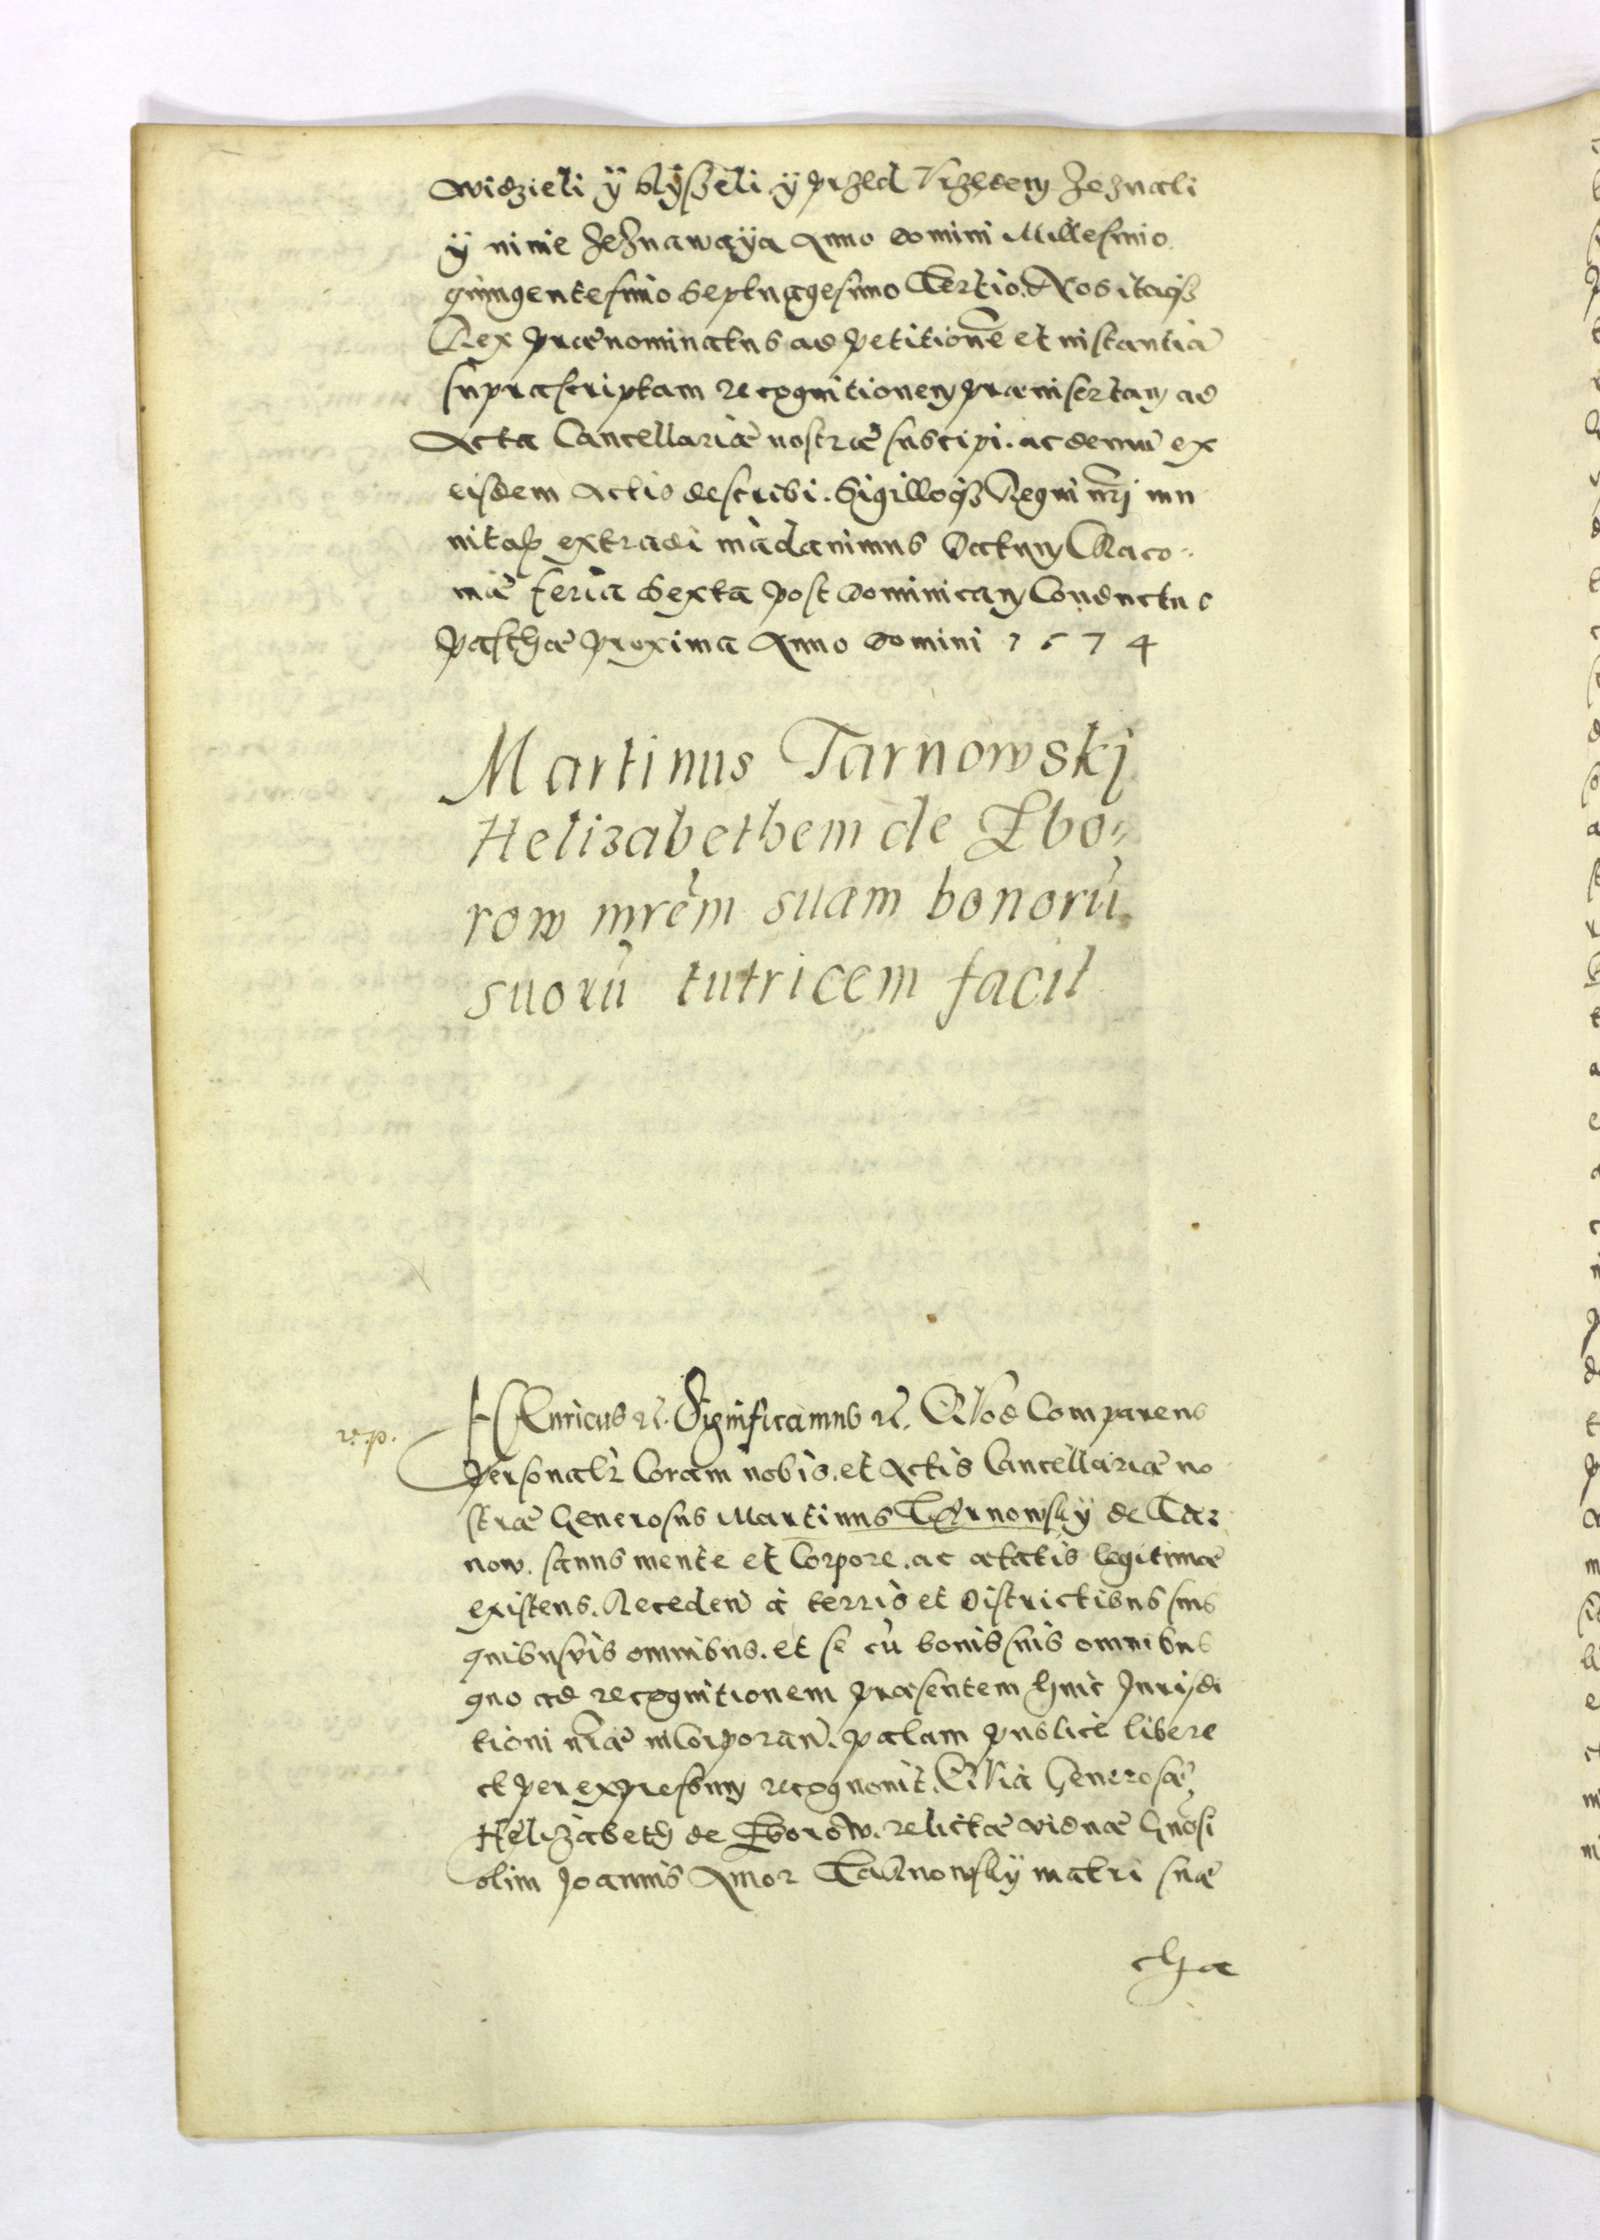 widzieli ÿ slÿsseli ÿ przed Vrzedem Zeznali
ÿ ninie Zeznawaÿa Anno Domini Millesimo
quingentesimo Septuagesimo Tertio. Nos itaqz
Rex prænominatus ad petitionē et instantiā
suprascriptam recognitionem præinsertam ad
Acta Cancellariæ nostræ suscipi. ac demū ex
eisdem Actis describi. Sigilloqz Regni nr̄i mu
nitas extradi mādauimus Datum Craco-
uiæ feria Sexta post Dominicam Conductus
Paschæ proxima Anno Domini 1574
Martinus Tarnowskj
Helizabethem de Ebo-
row mrēm suam bonorū
suorū tutricem facit
HEnricus etc. Significamus etc. Quod Comparens
r. p.
personalr̄ Coram nobis. et Actis Cancellariæ no
stræ Generosus Martinus Tarnowskÿ de Tar
now. sanus mente et Corpore. ac ætatis legitimæ
existens. Receden̄ à terris et Districtibus suis
quibusuis omnibus. et se cū bonis suis omnibus
quo ad recognitionem præsentem huic Jurisdi
tioni nr̄æ incorporan̄. palam publicè libere
et per expressum recognouit. Quia Generosæ
Helizabeth de Eborow. relictæ viduæ Gnosi
olim Joannis Amor Tarnowskÿ matri suæ
cha